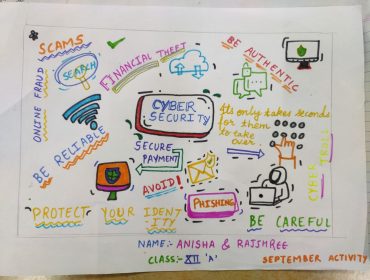 SCAMS
SEARCH
FINANCIAL THEFT
BE AUTHENTIC
ONLINE FRAUD
CYBER
SECURITY
Its only takes seconds
for them
to take
over.
BE RELIABLE
SECURE
PAYMENT
AVOID!
PHISHING
CYBER
PROTECT YOUR IDENTITY
BE CAREFUL
NAME:- ANISHA & RAJSHREE
CLASS:- XII 'A'
SEPTEMBER ACTIVITY